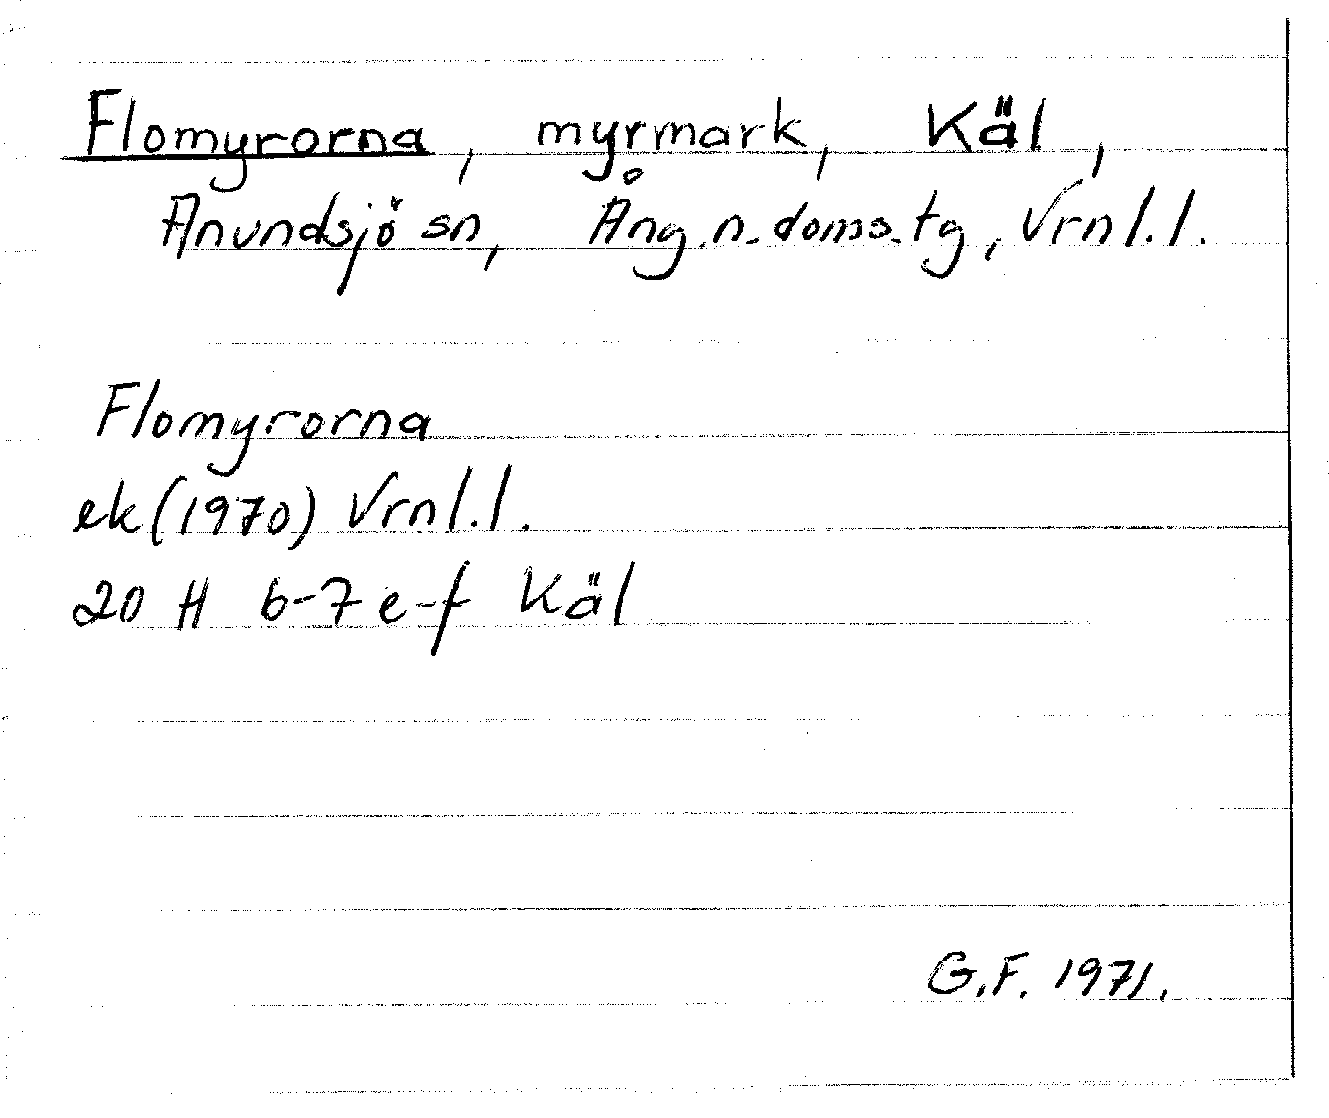 Flomyrorna, myrmark, Käl,
Anundsjö sn, Ång.n.doms.tg, Vrnl.l.
Flomyrorna
ek (1970) Vrnl.l.
20 H 6-7 e-f Käl
G.F. 1971.